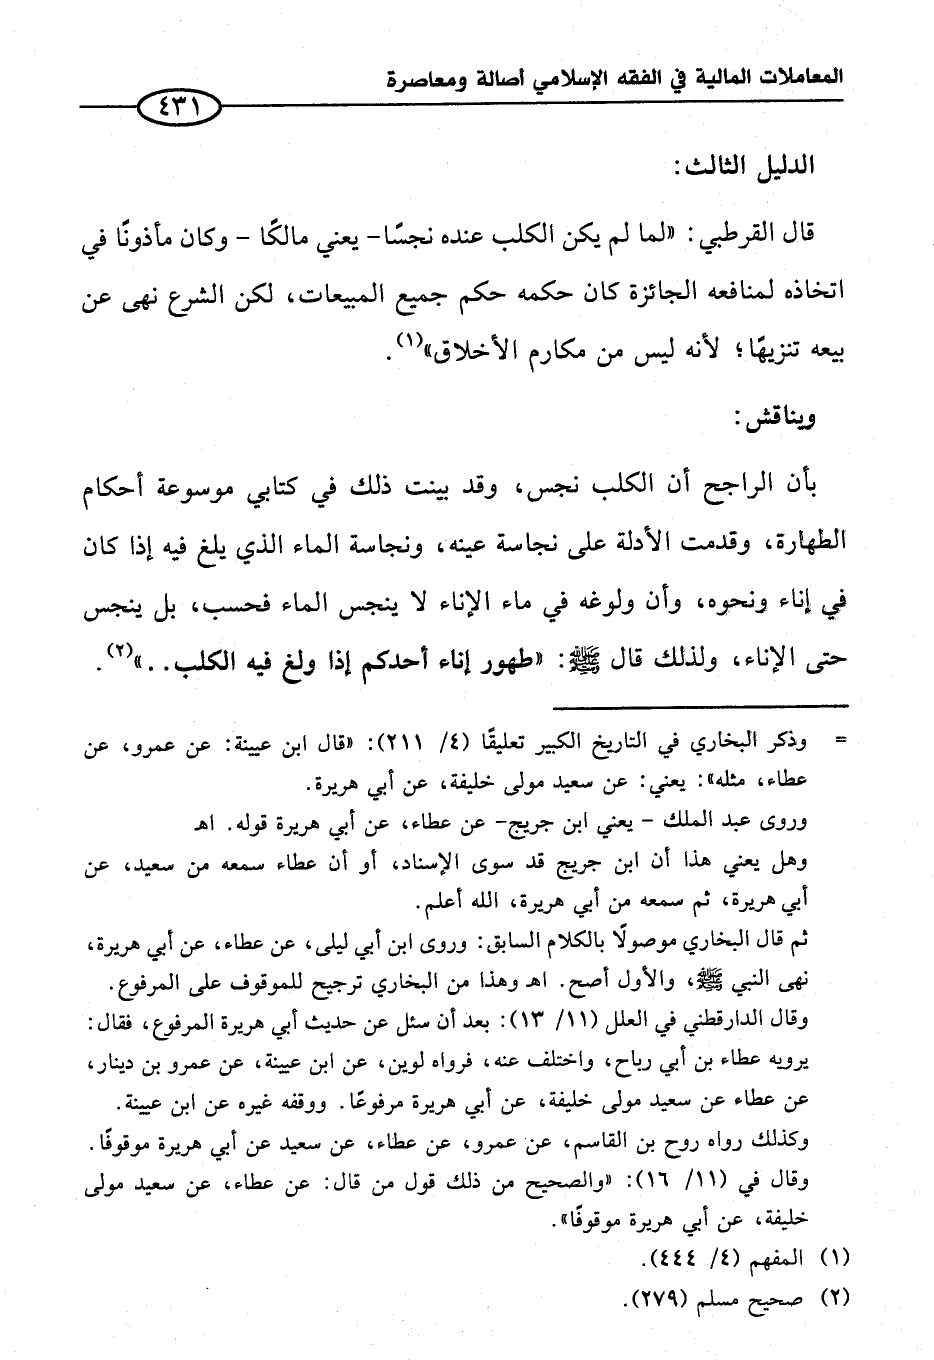 المعاملات المالية في الفقه الإسلامي أصالة ومعاصرة
٤٣١
الدليل الثالث:
قال القرطبي: «لما لم يكن الكلب عنده نجسًا- يعني مالكًا - وكان مأذونًا في
اتخاذه لمنافعه الجائزة كان حكمه حكم جميع المبيعات، لكن الشرع نهى عن
بيعه تنزيهًا؛ لأنه ليس من مكارم الأخلاق»(١).
ويناقش:
بأن الراجح أن الكلب نجس، وقد بينت ذلك في كتابي موسوعة أحكام
الطهارة، وقدمت الأدلة على نجاسة عينه، ونجاسة الماء الذي يلغ فيه إذا كان
في إناء ونحوه، وأن ولوغه في ماء الإناء لا ينجس الماء فحسب، بل ينجس
حتى الإناء، ولذلك قال ﷺ: «طهور إناء أحدكم إذا ولغ فيه الكلب..»(٢).
= وذكر البخاري في التاريخ الكبير تعليقًا (٤/ ٢١١): «قال ابن عيينة: عن عمرو، عن
عطاء، مثله»: يعني: عن سعيد مولى خليفة، عن أبي هريرة.
وروى عبد الملك - يعني ابن جريج- عن عطاء، عن أبي هريرة قوله. اهـ
وهل يعني هذا أن ابن جريج قد سوى الإسناد، أو أن عطاء سمعه من سعيد، عن
أبي هريرة، ثم سمعه من أبي هريرة، الله أعلم.
ثم قال البخاري موصولًا بالكلام السابق: وروى ابن أبي ليلى، عن عطاء، عن أبي هريرة،
نهى النبي ﷺ، والأول أصح. اهـ وهذا من البخاري ترجيح للموقوف على المرفوع.
وقال الدارقطني في العلل (١١/ ١٣): بعد أن سئل عن حديث أبي هريرة المرفوع، فقال:
يرويه عطاء بن أبي رباح، واختلف عنه، فرواه لوين، عن ابن عيينة، عن عمرو بن دينار،
عن عطاء عن سعيد مولى خليفة، عن أبي هريرة مرفوعًا. ووقفه غيره عن ابن عيينة.
وكذلك رواه روح بن القاسم، عن عمرو، عن عطاء، عن سعيد عن أبي هريرة موقوفًا.
وقال في (١١/ ١٦): «والصحيح من ذلك قول من قال: عن عطاء، عن سعيد مولى
خليفة، عن أبي هريرة موقوفًا».
(١) المفهم (٤/ ٤٤٤).
(٢) صحيح مسلم (٢٧٩).